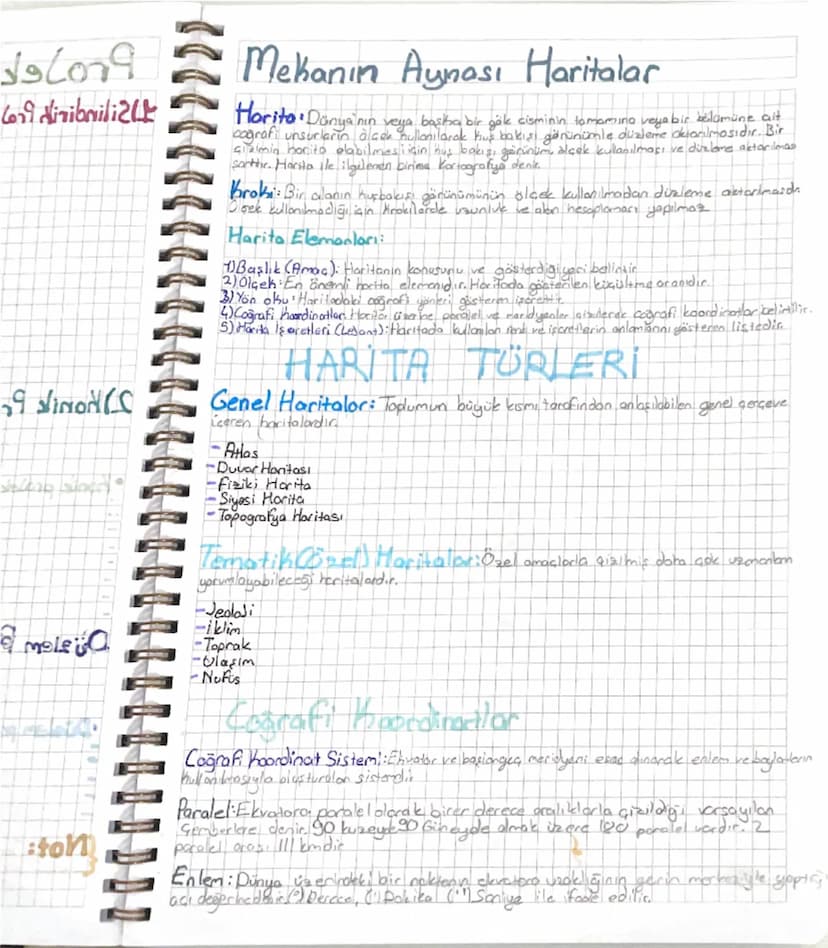 Mekanın Aynası Haritalar
Harita: Dünya'nın veya başka bir gök cisminin tamamına veya bir bölümüne ait
coğrafi unsurların ölçek kullanılarak kuş bakışı görünümle düzleme aktarılmasıdır. Bir
çizimin harita olabilmesi için kuş bakışı görünüm, ölçek kullanılması ve düzleme aktarılması
şarttır. Harita ile ilgilenen birime Kartografya denir.
Kroki: Bir alanın kuşbakışı görünümünün ölçek kullanılmadan düzleme aktarılmasıdır
Ölçek kullanılmadığı için Krokilerde uzunluk ve alan hesaplaması yapılmaz
Harita Elemanları:
1) Başlık (Amaç): Haritanın konusunu ve gösterdiği yeri belirtir
2) Ölçek: En önemli harita elemanıdır. Haritada gösterilen küçültme oranıdır.
3) Yön oku: Haritadaki coğrafi yönleri gösteren işarettir.
4) Coğrafi Koordinatlar: Harita üzerine paralel ve meridyenler çizilerek coğrafi koordinatlar belirtilir.
5) Harita İşaretleri (Lejant): Haritada kullanılan renk ve işaretlerin anlamlarını gösteren listedir.
HARİTA TÜRLERİ
Genel Haritalar: Toplumun büyük kısmı tarafından anlaşılabilen genel çerçeve
içeren haritalardır.
- Atlas
- Duvar Haritası
- Fiziki Harita
- Siyasi Harita
- Topografya Haritası
Tematik (Özel) Haritalar: Özel amaçlarla çizilmiş daha çok uzmanların
yorumlayabileceği haritalardır.
- Jeoloji
- İklim
- Toprak
- Ulaşım
- Nüfus
Coğrafi Koordinatlar
Coğrafi Koordinat Sistemi: Ekvator ve başlangıç meridyeni esas alınarak enlem ve boylamların
kullanılmasıyla oluşturulan sistemdir
Paralel: Ekvatora paralel olarak birer derece aralıklarla çizildiği varsayılan
çemberlere denir. 90 kuzeyde 90 Güneyde olmak üzere 180 paralel vardır. 2
paralel arası 111 kmdir
Enlem: Dünya üzerindeki bir noktanın ekvatora uzaklığının yerin merkeziyle yaptığı
açı değeri (°) Derece, (') Dakika ('') Saniye ile ifade edilir.
Not: